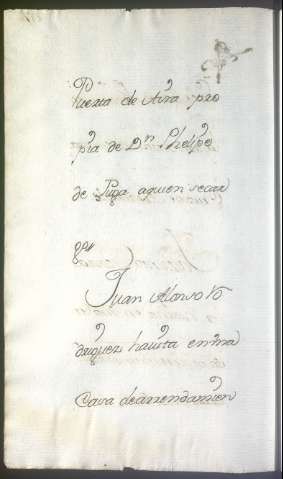 Puerta de Avra pro
pia de Dn Phelipe
de Puga aquien secar
ga
Juan Alonso Ro
driguez havita en una
Casa dearrendamien